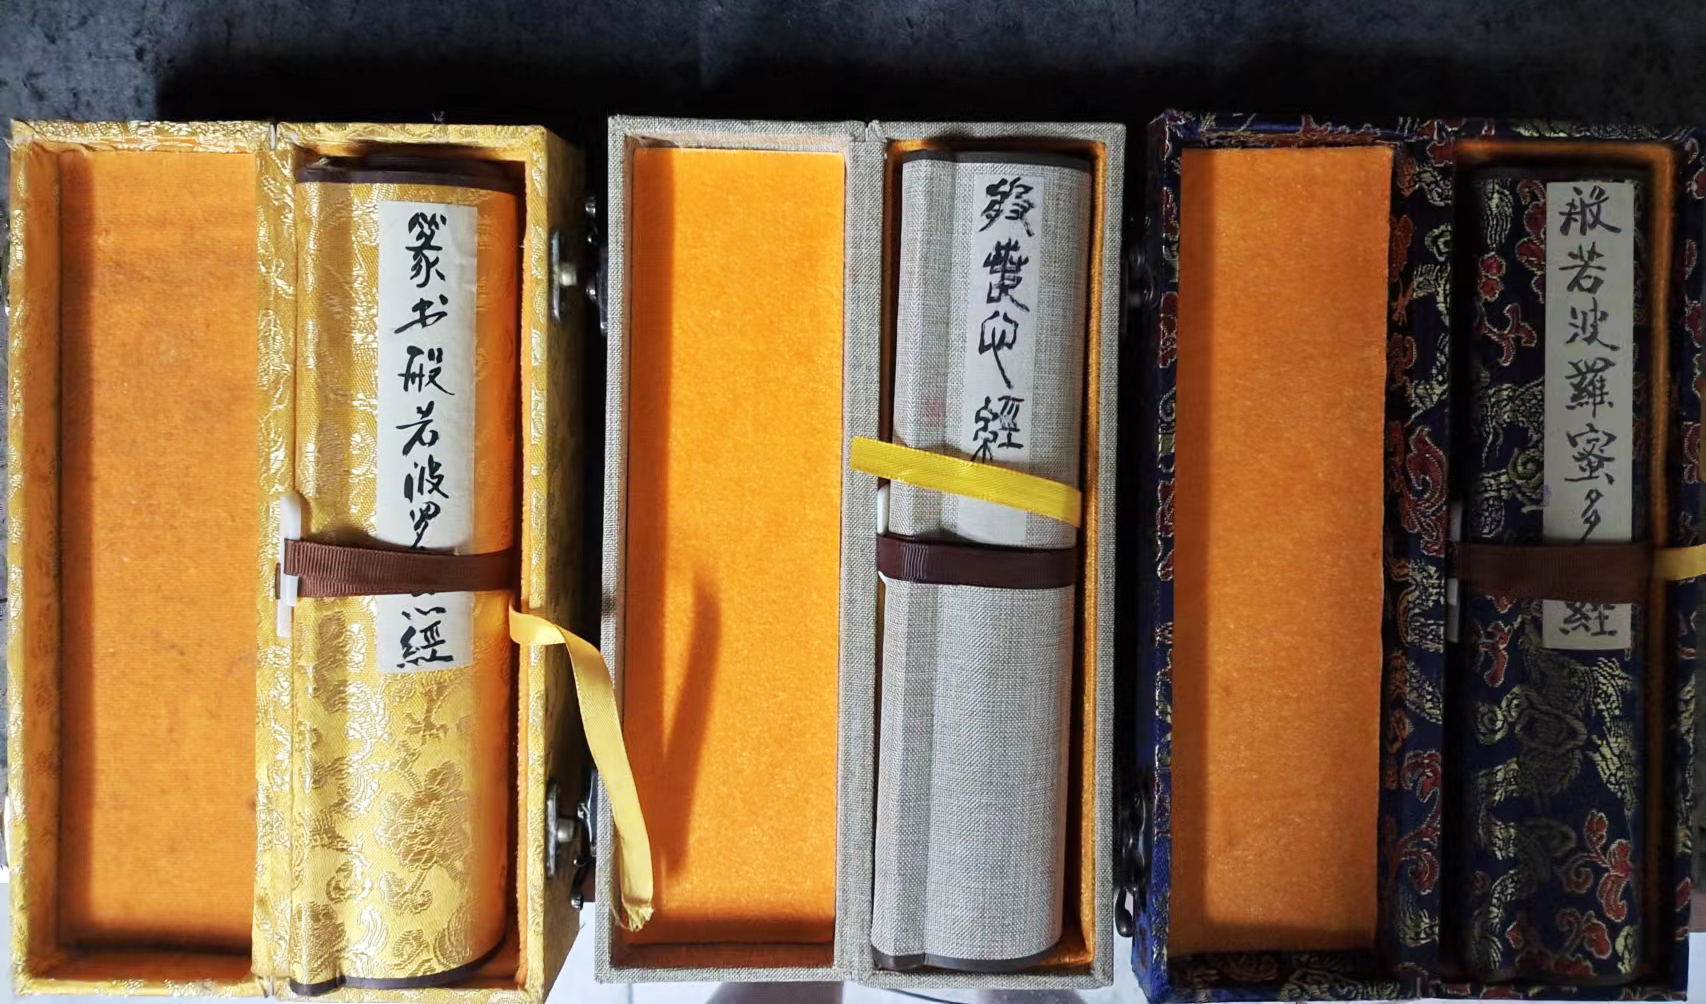 篆书般若波罗心經
般若心經
般若波羅蜜多經